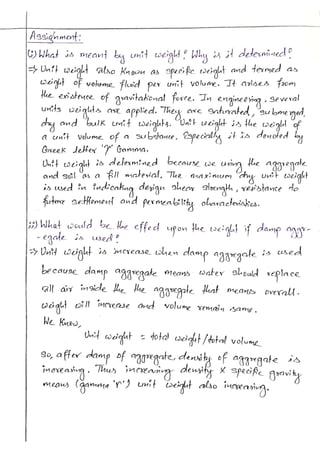 Assignment:
(i) What is meant by unit weight? Why is it determined?
=> Unit weight also known as specific weight and termed as
weight of volume fluid per unit volume. It arises from
the existence of gravitational force. In engineering, several
units weights are applied. They are saturated, submerged,
dry and bulk unit weights. Unit weight is the weight of
a unit volume of a substance. Especially it is denoted by
Greek letter 'γ' Gamma.
Unit weight is determined because we using the aggregate
and soil as a fill material. The maximum dry unit weight
is used in indicating design shear strength, resistance to
future settlement and permeability characteristics.
ii) What would be the effect upon the weight if damp aggr-
-egate is used?
=> Unit weight is increase when damp aggregate is used
because damp aggregate means water should replace
all air inside the the aggregate that means overall
weight will increase and volume remain same.
We know,
Unit weight = total weight/total volume
So, after damp of aggregate, density of aggregate is
increasing. Thus increasing density x specific gravity
means (gamma 'γ') unit weight also increasing.